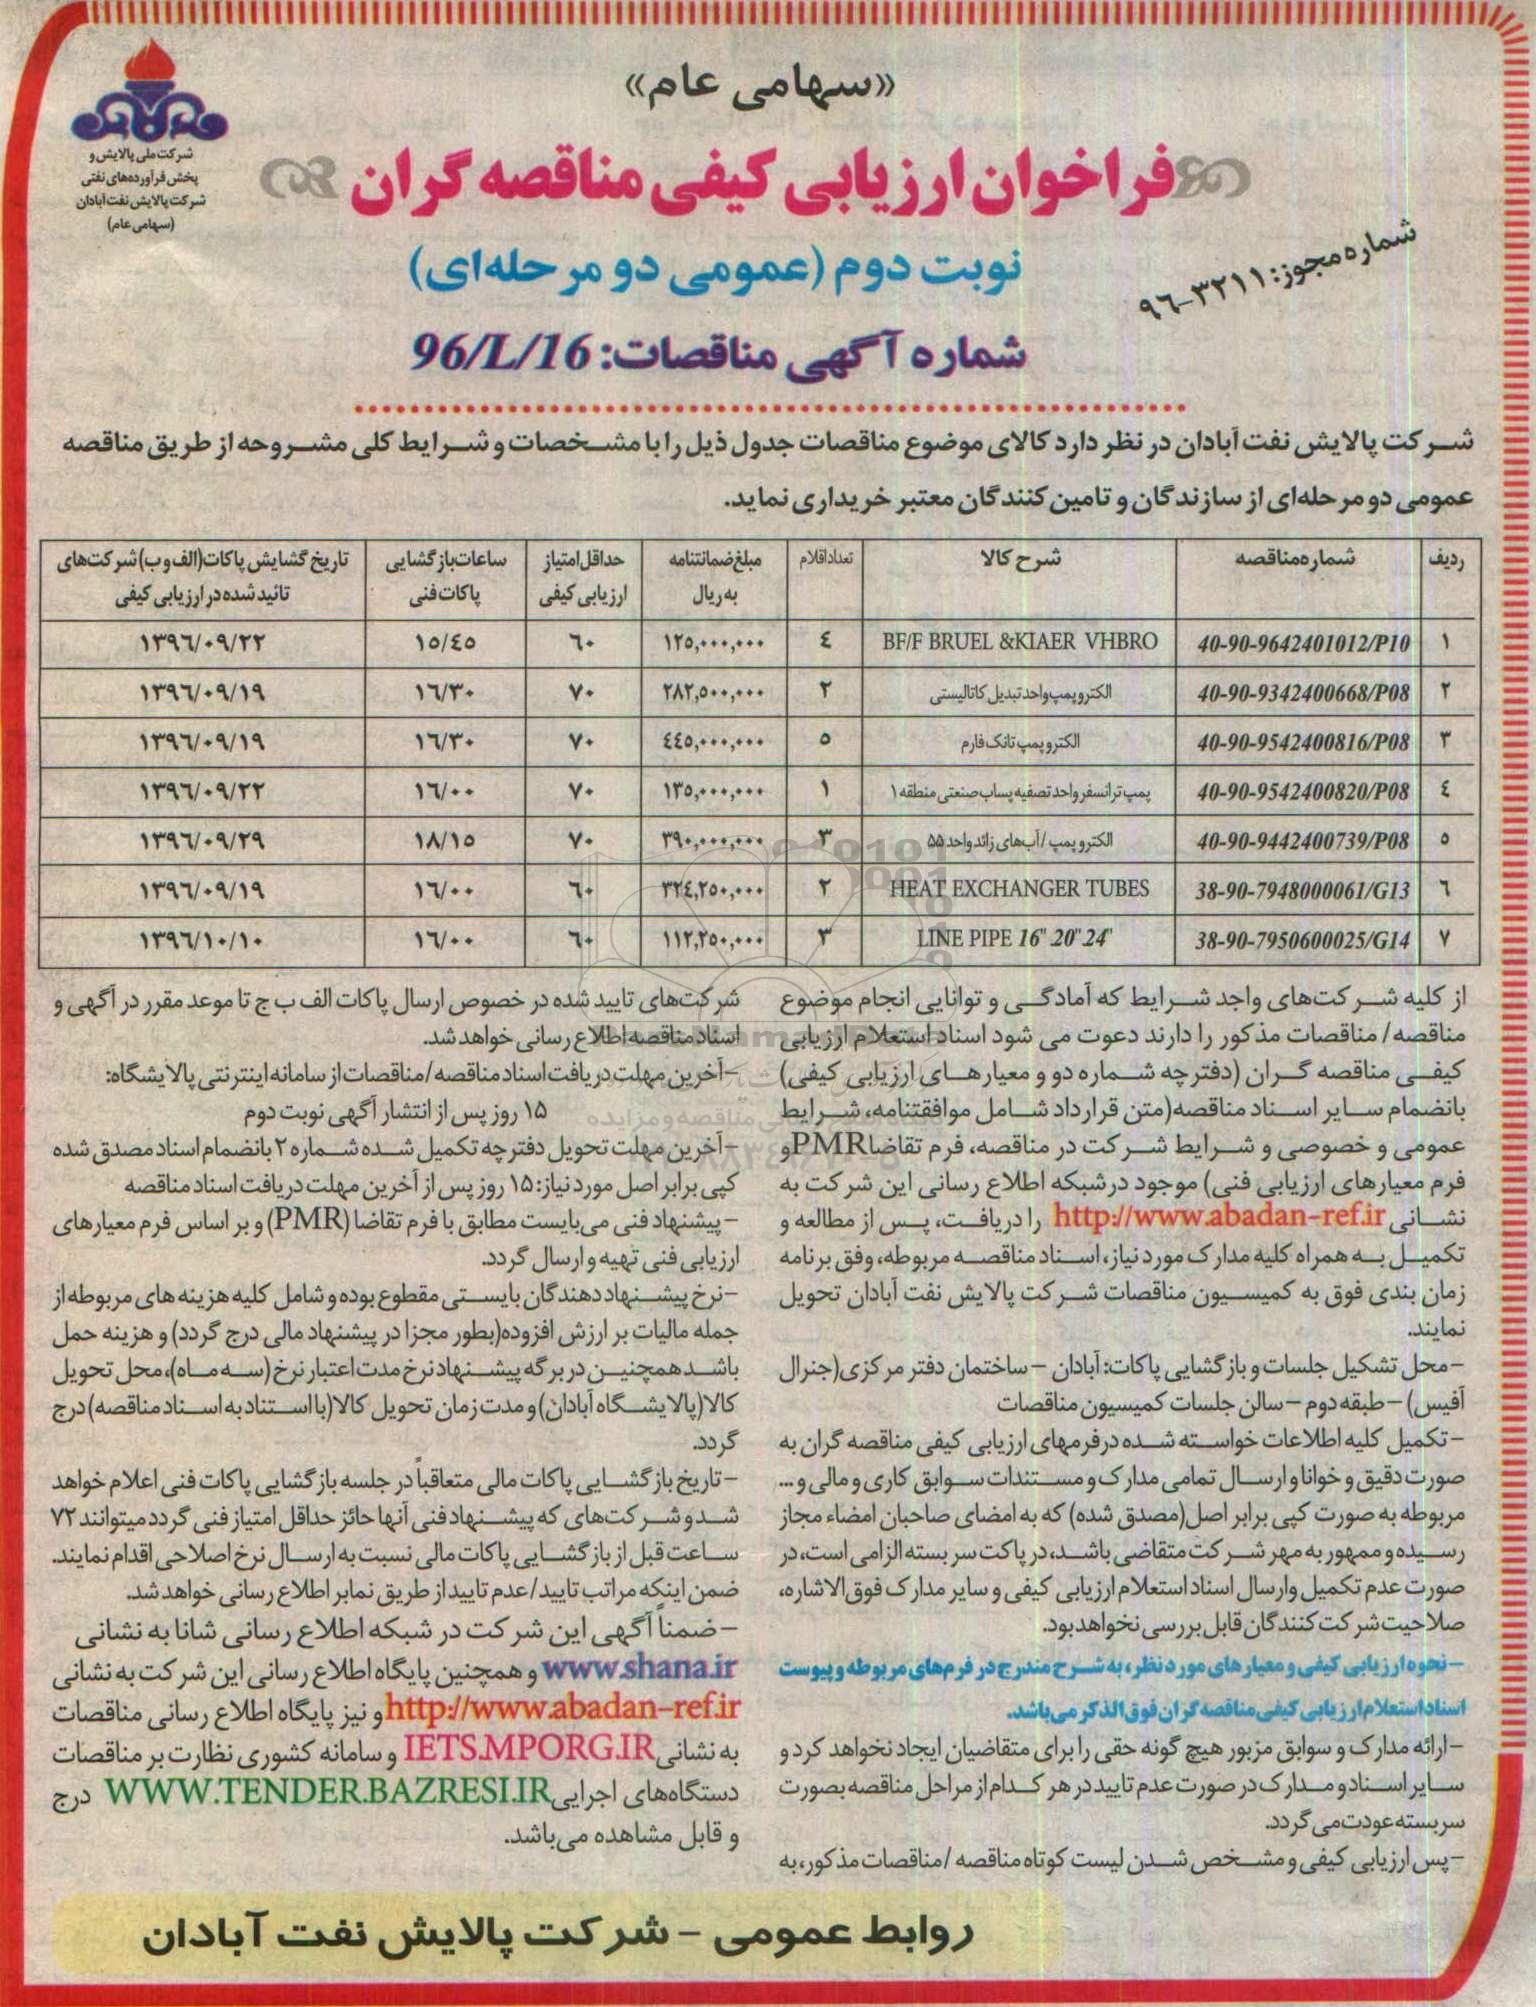 «سهامی عام»
شرکت ملی پالایش و
پخش فرآورده‌های نفتی
شرکت پالایش نفت آبادان
(سهامی عام)
فراخوان ارزیابی کیفی مناقصه گران
شماره مجوز: ۳۲۱۱-۹۶
نوبت دوم (عمومی دو مرحله‌ای)
شماره آگهی مناقصات: 96/L/16
شرکت پالایش نفت آبادان در نظر دارد کالای موضوع مناقصات جدول ذیل را با مشخصات و شرایط کلی مشروحه از طریق مناقصه
عمومی دو مرحله‌ای از سازندگان و تامین کنندگان معتبر خریداری نماید.
ردیف شماره مناقصه شرح کالا تعداد اقلام مبلغ ضمانتنامه به ریال حداقل امتیاز ارزیابی کیفی ساعات بازگشایی پاکات فنی تاریخ گشایش پاکات (الف و ب) شرکت‌های تائید شده در ارزیابی کیفی
۱ 40-90-9642401012/P10 BF/F BRUEL &KIAER VHBRO ٤ ۱۲۵,۰۰۰,۰۰۰ ۶۰ ۱۵/٤۵ ۱۳۹۶/۰۹/۲۲
۲ 40-90-9342400668/P08 الکتروپمپ واحد تبدیل کاتالیستی ۲ ۲۸۲,۵۰۰,۰۰۰ ۷۰ ۱۶/۳۰ ۱۳۹۶/۰۹/۱۹
۳ 40-90-9542400816/P08 الکتروپمپ تانک فارم ۵ ٤٤۵,۰۰۰,۰۰۰ ۷۰ ۱۶/۳۰ ۱۳۹۶/۰۹/۱۹
٤ 40-90-9542400820/P08 پمپ ترانسفر واحد تصفیه پساب صنعتی منطقه ۱ ۱ ۱۳۵,۰۰۰,۰۰۰ ۷۰ ۱۶/۰۰ ۱۳۹۶/۰۹/۲۲
۵ 40-90-9442400739/P08 الکتروپمپ / آب‌های زائد واحد ۵۵ ۳ ۳۹۰,۰۰۰,۰۰۰ ۷۰ ۱۸/۱۵ ۱۳۹۶/۰۹/۲۹
۶ 38-90-7948000061/G13 HEAT EXCHANGER TUBES ۲ ۳۲٤,۲۵۰,۰۰۰ ۶۰ ۱۶/۰۰ ۱۳۹۶/۰۹/۱۹
۷ 38-90-7950600025/G14 LINE PIPE 16" 20" 24" ۳ ۱۱۲,۲۵۰,۰۰۰ ۶۰ ۱۶/۰۰ ۱۳۹۶/۱۰/۱۰
از کلیه شرکت‌های واجد شرایط که آمادگی و توانایی انجام موضوع
مناقصه/ مناقصات مذکور را دارند دعوت می شود اسناد استعلام ارزیابی
کیفی مناقصه گران (دفترچه شماره دو و معیارهای ارزیابی کیفی)
بانضمام سایر اسناد مناقصه(متن قرارداد شامل موافقتنامه، شرایط
عمومی و خصوصی و شرایط شرکت در مناقصه، فرم تقاضاPMR و
فرم معیارهای ارزیابی فنی) موجود درشبکه اطلاع رسانی این شرکت به
نشانی http://www.abadan-ref.ir را دریافت، پس از مطالعه و
تکمیل به همراه کلیه مدارک مورد نیاز، اسناد مناقصه مربوطه، وفق برنامه
زمان بندی فوق به کمیسیون مناقصات شرکت پالایش نفت آبادان تحویل
نمایند.
-محل تشکیل جلسات و بازگشایی پاکات: آبادان - ساختمان دفتر مرکزی(جنرال
آفیس) - طبقه دوم - سالن جلسات کمیسیون مناقصات
- تکمیل کلیه اطلاعات خواسته شده درفرمهای ارزیابی کیفی مناقصه گران به
صورت دقیق و خوانا و ارسال تمامی مدارک و مستندات سوابق کاری و مالی و ...
مربوطه به صورت کپی برابر اصل(مصدق شده) که به امضای صاحبان امضاء مجاز
رسیده و ممهور به مهر شرکت متقاضی باشد، در پاکت سر بسته الزامی است، در
صورت عدم تکمیل وارسال اسناد استعلام ارزیابی کیفی و سایر مدارک فوق الاشاره،
صلاحیت شرکت کنندگان قابل بررسی نخواهد بود.
- نحوه ارزیابی کیفی و معیارهای مورد نظر، به شرح مندرج در فرم‌های مربوطه و پیوست
اسناد استعلام ارزیابی کیفی مناقصه گران فوق الذکر می باشد.
-ارائه مدارک و سوابق مزبور هیچ گونه حقی را برای متقاضیان ایجاد نخواهد کرد و
سایر اسناد و مدارک در صورت عدم تایید در هر کدام از مراحل مناقصه بصورت
سربسته عودت می گردد.
-پس ارزیابی کیفی و مشخص شدن لیست کوتاه مناقصه /مناقصات مذکور، به
شرکت‌های تایید شده در خصوص ارسال پاکات الف ب ج تا موعد مقرر در آگهی و
اسناد مناقصه اطلاع رسانی خواهد شد.
-آخرین مهلت دریافت اسناد مناقصه /مناقصات از سامانه اینترنتی پالایشگاه:
۱۵ روز پس از انتشار آگهی نوبت دوم
-آخرین مهلت تحویل دفترچه تکمیل شده شماره ۲ بانضمام اسناد مصدق شده
کپی برابر اصل مورد نیاز: ۱۵ روز پس از آخرین مهلت دریافت اسناد مناقصه
- پیشنهاد فنی می‌بایست مطابق با فرم تقاضا (PMR) و بر اساس فرم معیارهای
ارزیابی فنی تهیه و ارسال گردد.
-نرخ پیشنهاد دهندگان بایستی مقطوع بوده و شامل کلیه هزینه های مربوطه از
جمله مالیات بر ارزش افزوده(بطور مجزا در پیشنهاد مالی درج گردد) و هزینه حمل
باشد همچنین در برگه پیشنهاد نرخ مدت اعتبار نرخ (سه ماه)، محل تحویل
کالا(پالایشگاه آبادان) و مدت زمان تحویل کالا(با استناد به اسناد مناقصه) درج
گردد.
- تاریخ بازگشایی پاکات مالی متعاقباً در جلسه بازگشایی پاکات فنی اعلام خواهد
شد و شرکت‌های که پیشنهاد فنی آنها حائز حداقل امتیاز فنی گردد میتوانند ۷۲
ساعت قبل از بازگشایی پاکات مالی نسبت به ارسال نرخ اصلاحی اقدام نمایند.
ضمن اینکه مراتب تایید/عدم تایید از طریق نمابر اطلاع رسانی خواهد شد.
- ضمناً آگهی این شرکت در شبکه اطلاع رسانی شانا به نشانی
www.shana.ir و همچنین پایگاه اطلاع رسانی این شرکت به نشانی
http://www.abadan-ref.ir و نیز پایگاه اطلاع رسانی مناقصات
به نشانی IETS.MPORG.IR و سامانه کشوری نظارت بر مناقصات
دستگاه‌های اجرایی WWW.TENDER.BAZRESI.IR درج
و قابل مشاهده می‌باشد.
روابط عمومی - شرکت پالایش نفت آبادان